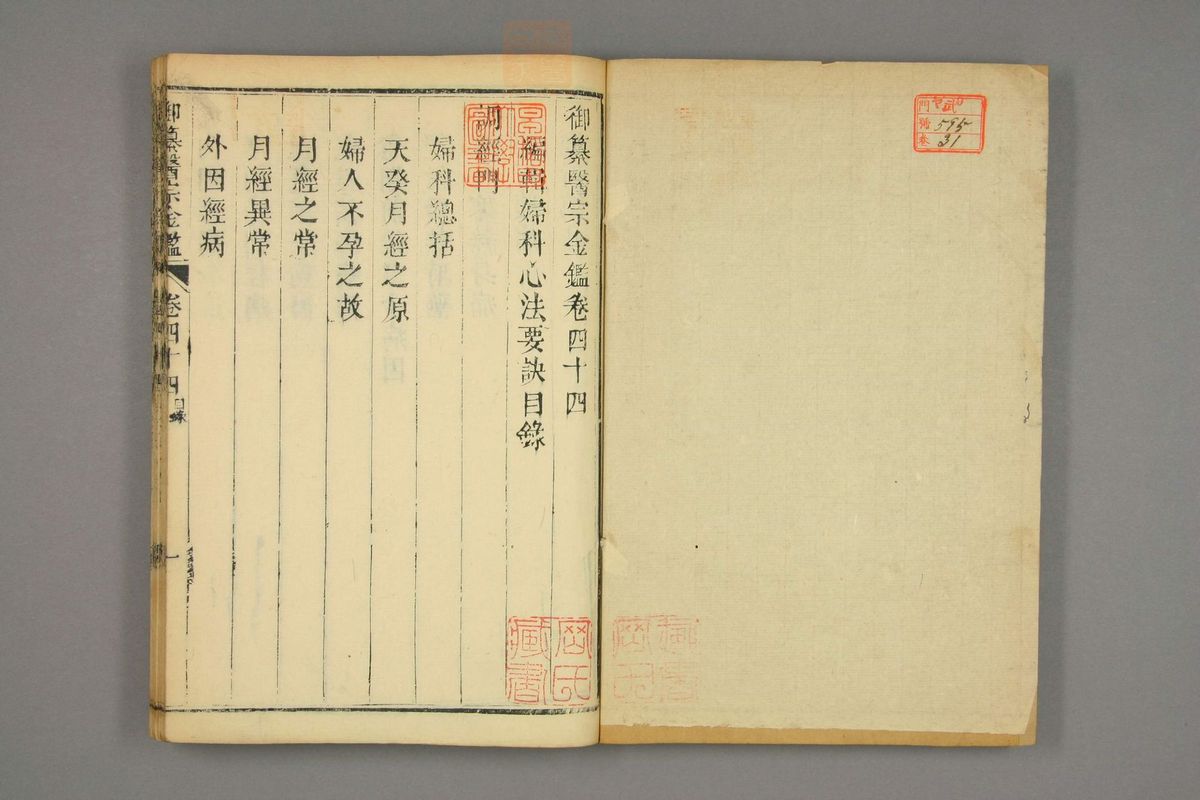 御纂醫宗金鑑卷四十四
編輯婦科心法要訣目錄
調經門
婦科總括
天癸月經之原
婦人不孕之故
月經之常
月經異常
外因經病
御纂醫宗金鑑 卷四十四 目錄 一
門
號 595
卷 31
岡氏藏書